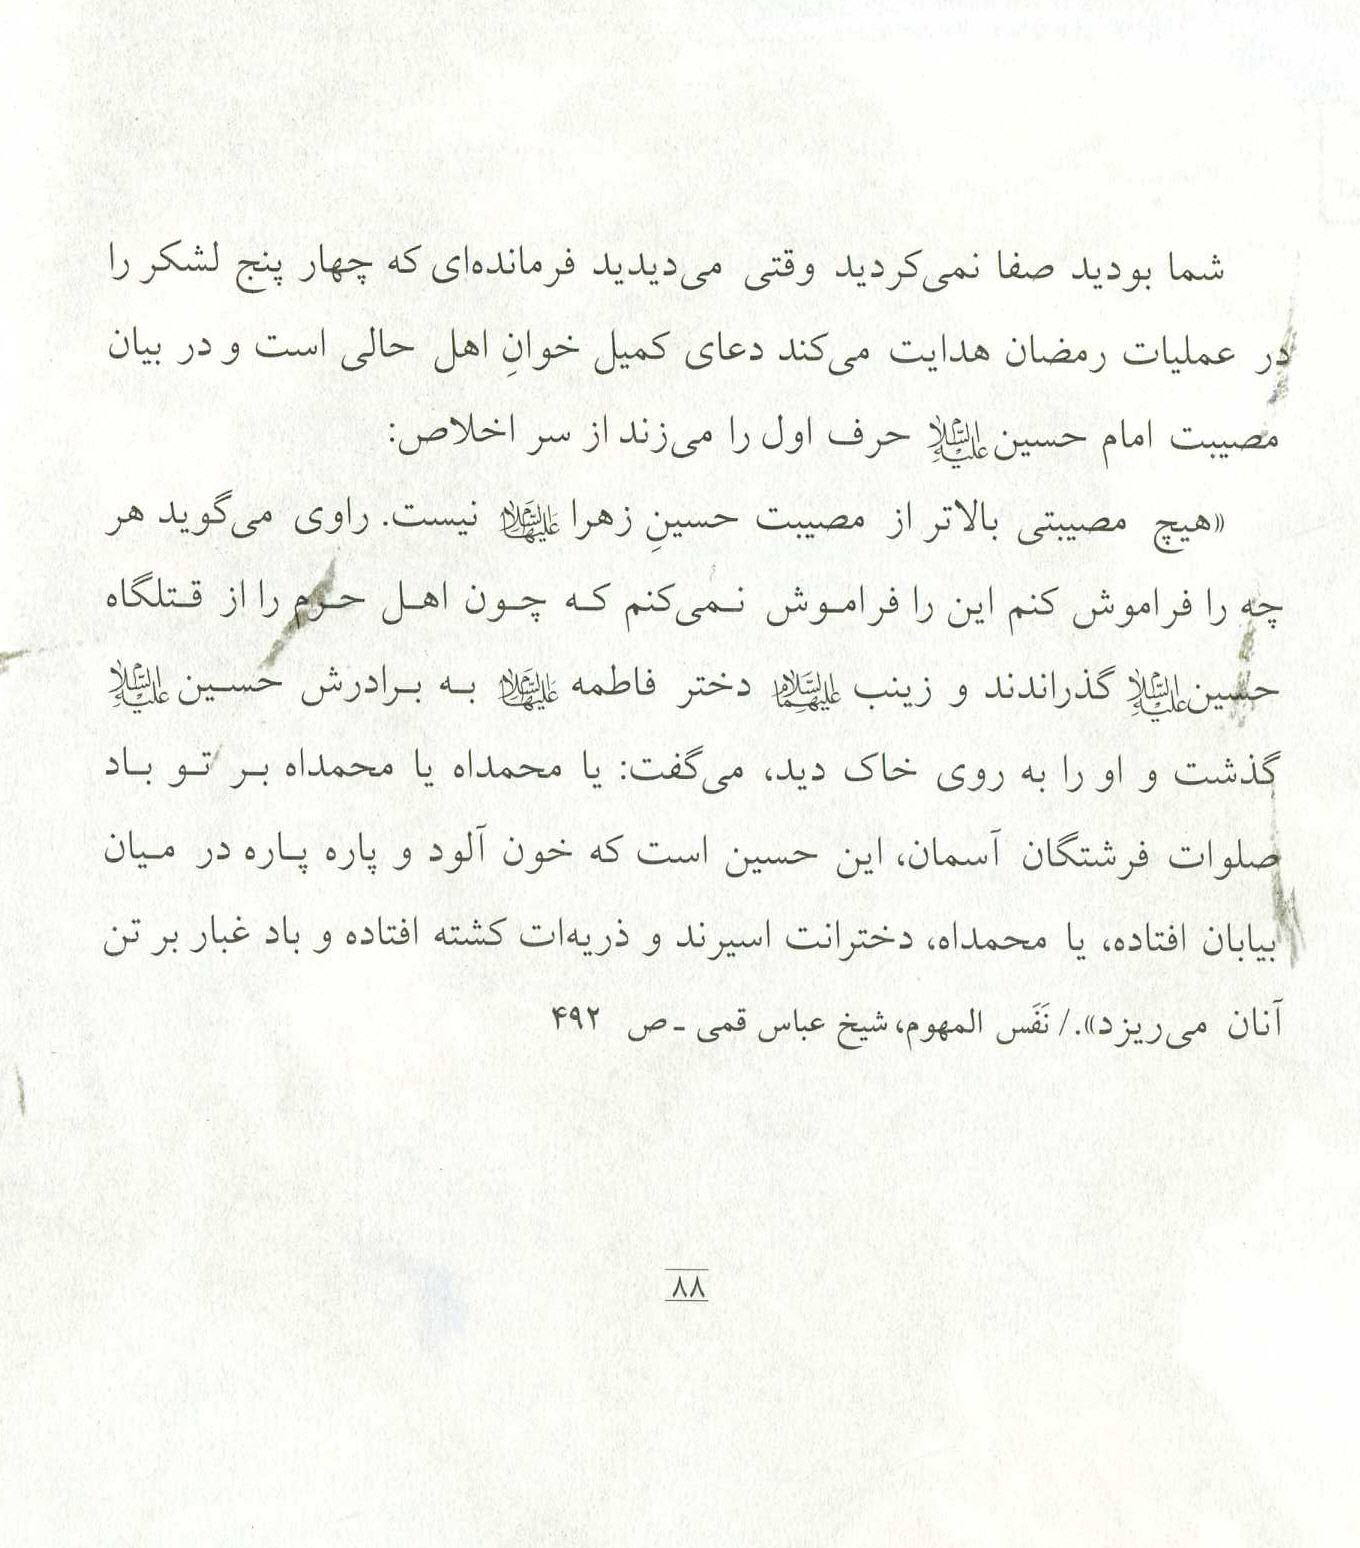 شما بودید صفا نمی‌کردید وقتی می‌دیدید فرمانده‌ای که چهار پنج لشکر را
در عملیات رمضان هدایت می‌کند دعای کمیل خوانِ اهل حالی است و در بیان
مصیبت امام حسین علیه‌السلام حرف اول را می‌زند از سر اخلاص:
«هیچ مصیبتی بالاتر از مصیبت حسینِ زهرا علیهاالسلام نیست. راوی می‌گوید هر
چه را فراموش کنم این را فراموش نمی‌کنم که چون اهل حرم را از قتلگاه
حسین علیه‌السلام گذراندند و زینب علیهماالسلام دختر فاطمه علیهاالسلام به برادرش حسین علیه‌السلام
گذشت و او را به روی خاک دید، می‌گفت: یا محمداه یا محمداه بر تو باد
صلوات فرشتگان آسمان، این حسین است که خون آلود و پاره پاره در میان
بیابان افتاده، یا محمداه، دخترانت اسیرند و ذریه‌ات کشته افتاده و باد غبار بر تن
آنان می‌ریزد»./ نَفَس المهموم، شیخ عباس قمی ـ ص ۴۹۲
۸۸